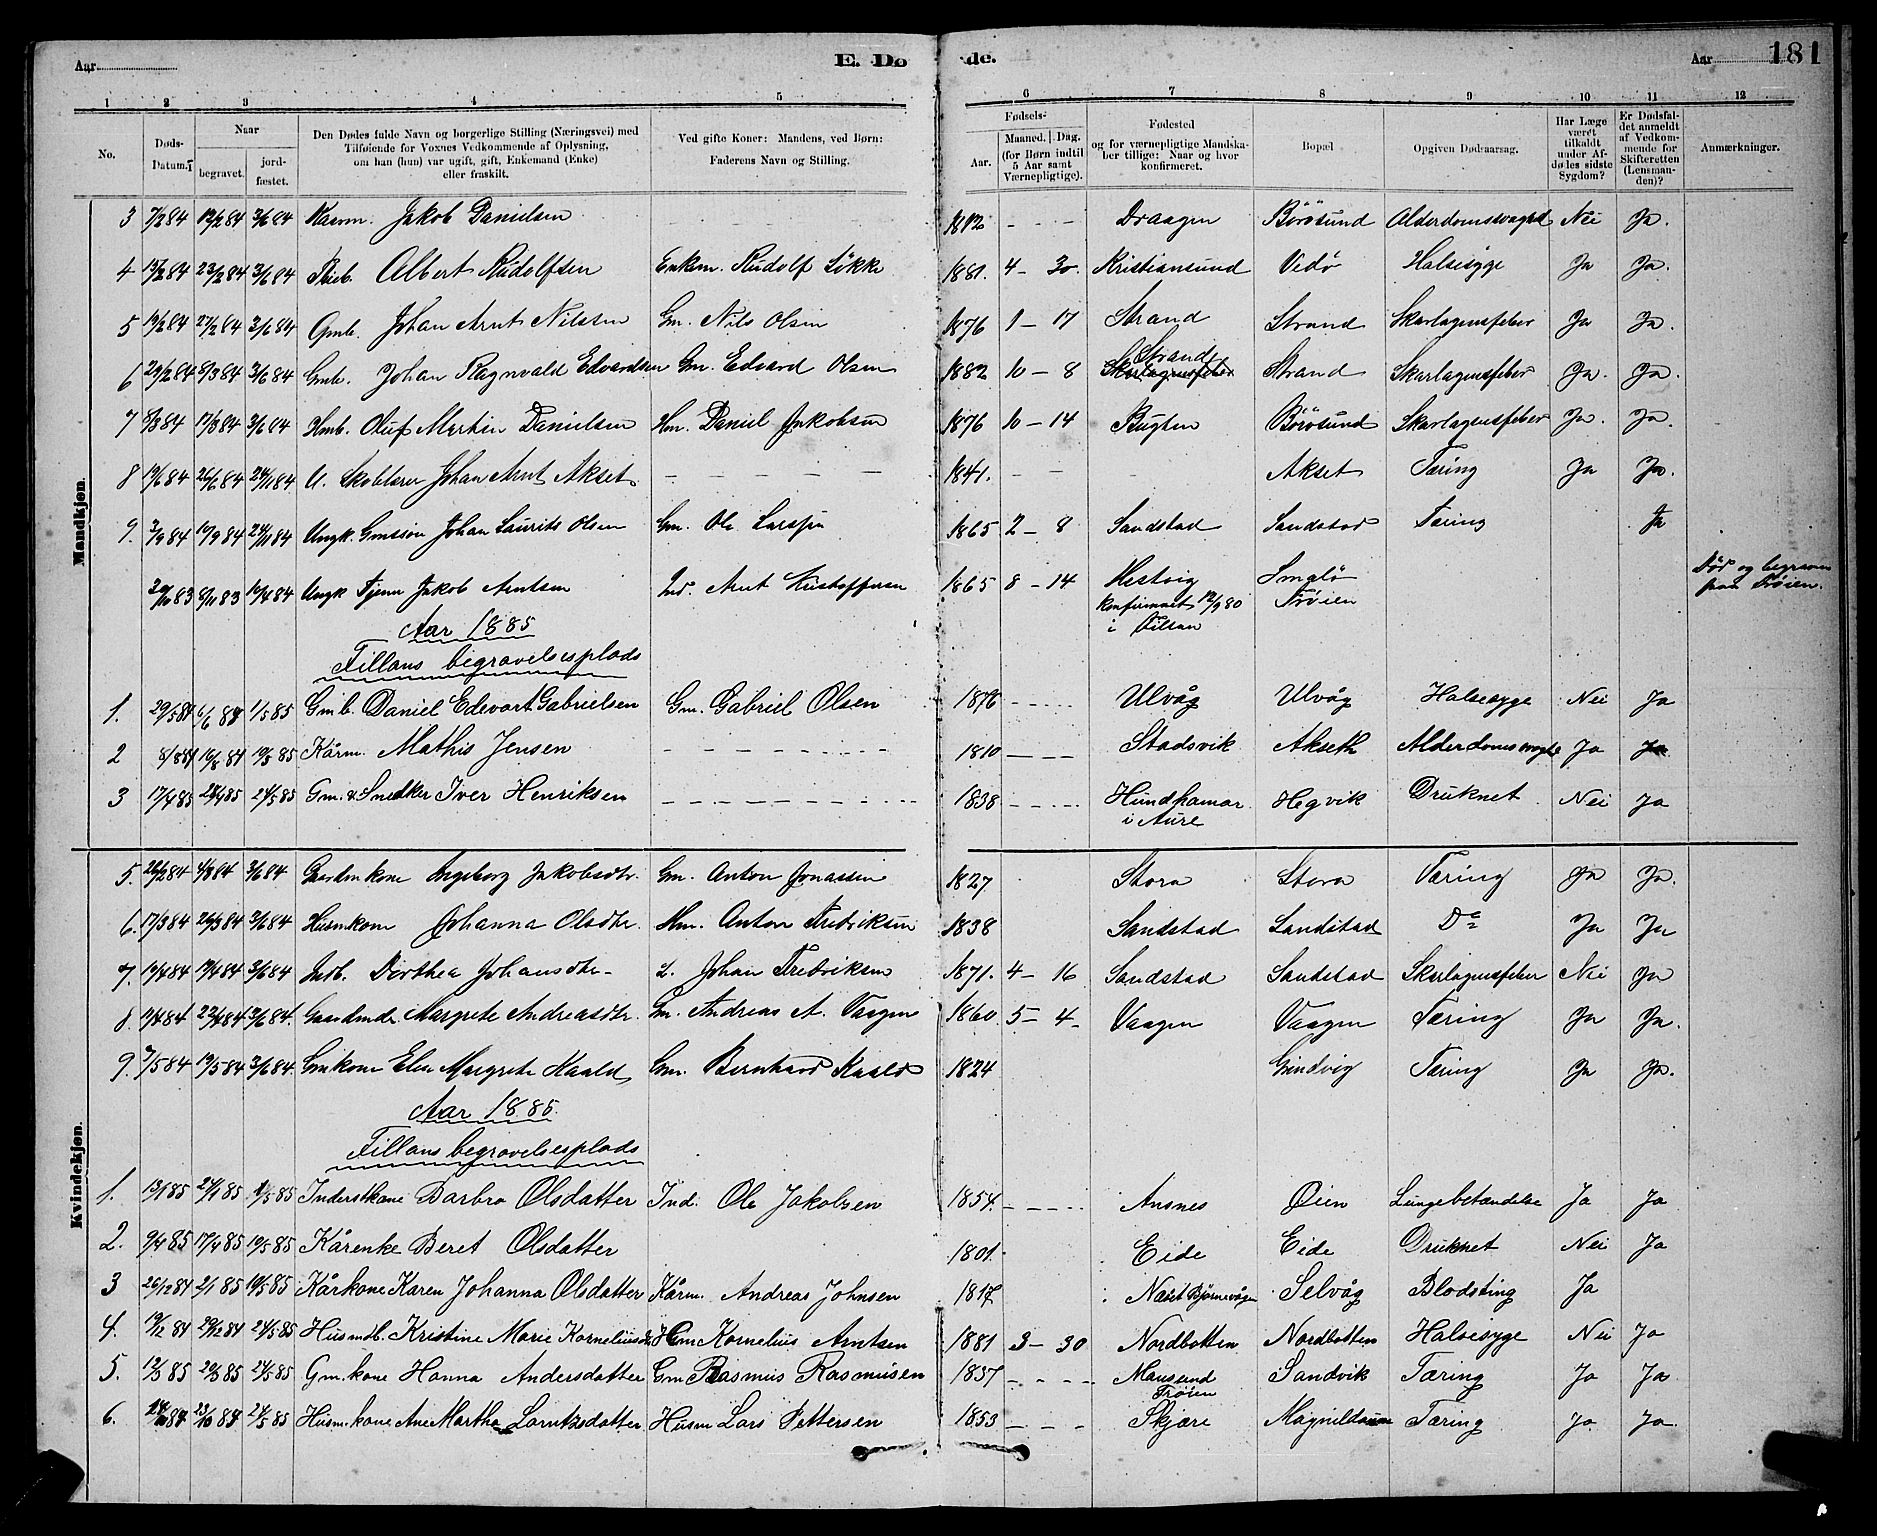 Aar
E. Dø
de.
Aar
181
1 2 3 4 5 6 7 8 9 10 11 12
No.
Døds-Datum.
Naar
begravet.
jordfæstet.
Den Dødes fulde Navn og borgerlige Stilling (Næringsvei) med Tilføiende for Voxnes Vedkommende af Oplysning, om han (hun) var ugift, gift, Enkemand (Enke) eller fraskilt.
Ved gifte Koner: Mandens, ved Børn: Faderens Navn og Stilling.
Fødsels-
Aar.
Maaned. Dag. (for Børn indtil 5 Aar samt Værnepligtige).
Fødested og for værnepligtige Mandskaber tillige: Naar og hvor konfirmeret.
Bopæl
Opgiven Dødsaarsag.
Har Læge været tilkaldt under Afdødes sidste Sygdom?
Er Dødsfaldet anmeldt af Vedkommende for Skifteretten (Lensmanden)?
Anmærkninger.
Mandkjøn.
3 7/2 84 12/2 84 3/6 84 Kaarm. Jakob Danielsen 1812 - - - Draagen Börösund Alderdomssvaghed Nei Ja.
4 15/2 84 23/2 84 3/6 84 Albert Rudolfsen Enkem. Rudolf Lökke 1881. 4 - 30. Kristiansund Vedö Halsesyge Ja Ja.
5 19/2 84 27/2 84 3/6 84 Gmb. Johan Arnt Nilsen Gm. Nils Olsen 1876 1 - 17 Strand Strand Skarlagensfeber Ja Ja.
6 29/2 84 8/3 84 3/6 84 Gmb. Johan Ragnvald Edvardsen Gm. Edvard Olsen 1882 10 - 8 Skarlagensfeber Strand Strand Skarlagensfeber Ja. Ja.
7 8/3 84 17/3 84 3/6 84 Hmb. Oluf Martin Danielsen Hm. Daniel Jakobsen 1876 10 - 14 Bugten Börösund Skarlagensfeber Ja. Ja.
8 19/6 84 26/6 84 24/11 84 U. Skolelærer Johan Arnt Akset - - - - 1841. - - Akset Tæring Ja Ja.
9. 3/9 84 10/9 84 24/11 84 Ungk. Gmssön Johan Laurits Olsen Gm. Ole Larsen 1865 2 - 8 Sandstad Sandstad Tæring Ja
29/10 83 8/11 83 16/4 84 Ungk Tjener Jakob Arntsen Ind. Arnt Kristoffersen 1865 8 - 14 Hestvig konfirmeret 12/9 80 i Fillan Smalö Fröien Död og begraven paa Fröien.
Aar 1885
Fillans begravelsesplads
1. 29/5 84 6/6 84 1/5 85 Gmb. Daniel Edevart Gabrielsen Gm. Gabriel Olsen 1876 - - - - Ulvåg Ulvåg Halsesyge Nei Ja
2 8/8 84 16/8 84 10/5 85 Kårm. Mathis Jensen - - - - - - 1810 - - - Stadsvik Akseth Alderdomssvaghed Ja Ja
3 17/4 85 28/4 85 24/5 85 Gm. & Snedker Iver Henriksen - - - - - - 1838 - - - - Hundhamar i Aure Hegvik Druknet Nei Ja
Kvindekjøn.
5. 26/2 84 4/3 84 3/6 84 Gaardmkone Ingeborg Jakobsdtr. Gm. Anton Jonassen 1827 Stora Stora Tæring Ja Ja.
6. 17/3 84 26/3 84 3/6 84 Husmkone Johanna Olsdtr. Hm. Anton Fredriksen 1838 Sandstad Sandstad Do Ja Ja
7. 10/4 84 19/4 84 3/6 84 Indb. Dorthea Johansdtr. I. Johan Fredriksen 1871. 4 - 16 Sandstad Sandstad Skarlagensfeber Nei Ja
8. 14/4 84 22/4 84 3/6 84. Gaardmdr. Margrete Andreasdtr. Gm. Andreas A. Vaagen 1860 5 - 4 - Vaagen Vaagen Tæring Ja Ja.
9. 7/5 84 19/5 84 3/6 84. Gmkone Elen Margrete Kaald Gm. Bernhard Kaald 1824 Grindvig Tæring Ja Ja.
Aar 1885.
Fillans begravelsesplads
1. 13/1 85 24/1 85 1/5 85 Inderstkone Barbro Olsdatter Ind. Ole Jakobsen 1854. - - - - Ansnes Öien Lungebetændelse Ja Ja
2. 9/4 85 17/4 85 10/5 85 Kårenke Beret Olsdatter 1801. Eide Eide Druknet Nei Ja
3 26/12 84 2/1 85 10/5 85 Kårkone Karen Johanna Olsdatter Kårm. Andreas Johnsen 1817. Næset Bjørnevågen Selvåg Blodsting Ja
4. 19/12 84 29/12 84 24/5 85 Husmdb. Kristine Marie Korneliusd. Hm Kornelius Arntsen 1881 3 - 30 Nordbotten Nordbotten Halsesyge Nei Ja
5. 12/3 85 20/3 85 24/5 85 Gm. kone Hanna Andersdatter Gm Rasmus Rasmusen 1837 - - - - Mausund Fröien Sandvik Tæring Ja Ja
6. 14/10 84 23/10 84 24/5 85 Husm. kone Ane Martha Lorntzsdatter Husm Lars Pettersen 1853 - - - Skjære Magnildöen Tæring Ja. Ja.